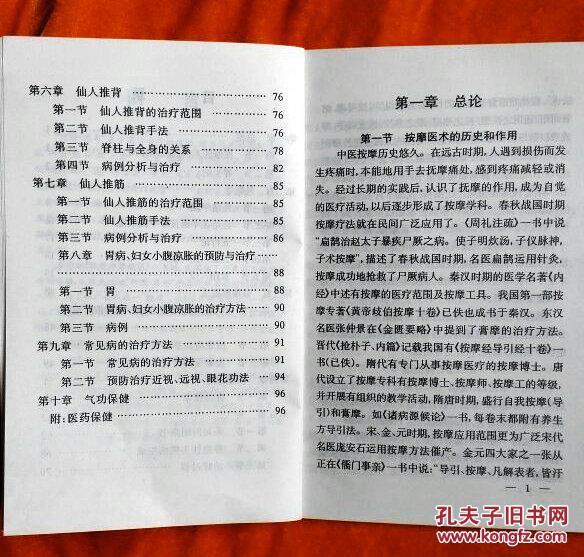 第六章 仙人推背 ………… 76
第一节 仙人推背的治疗范围 ………… 76
第二节 仙人推背手法 ………… 76
第三节 脊柱与全身的关系 ………… 78
第四节 病例分析与治疗 ………… 82
第七章 仙人推筋 ………… 85
第一节 仙人推筋的治疗范围 ………… 85
第二节 仙人推筋手法 ………… 85
第三节 病例分析与治疗 ………… 86
第八章 胃病、妇女小腹凉胀的预防与治疗 ……
………… 88
第一节 胃 ………… 88
第二节 胃病、妇女小腹凉胀的治疗方法 … 90
第三节 病例 ………… 90
第九章 常见病的治疗方法 ………… 91
第一节 常见病的治疗方法 ………… 91
第二节 预防治疗近视、远视、眼花功法 … 94
第十章 气功保健 ………… 96
附:医药保健 ………… 96
第一章 总论
第一节 按摩医术的历史和作用
中医按摩历史悠久。在远古时期,人遇到损伤而发
生疼痛时,本能地用手去抚摩痛处,感到疼痛减轻或消
失。经过长期的实践后,认识了抚摩的作用,成为自觉
的医疗活动,以后逐步形成了按摩学科。春秋战国时期
按摩疗法就在民间广泛应用了。《周礼注疏》一书中说
“扁鹊治赵太子暴疾尸厥之病。使子明炊汤,子仪脉神,
子术按摩”,描述了春秋战国时期,名医扁鹊运用针灸、
按摩成功地抢救了尸厥病人。秦汉时期的医学名著《内
经》中述有按摩的医疗范围及按摩工具。我国第一部按
摩专著《黄帝歧伯按摩十卷》已佚也成书于秦汉。东汉
名医张仲景在《金匮要略》中提到了膏摩的治疗方法。
晋代《抢朴子、内篇》记载我国有《按摩经导引经十卷》一
书(已佚)。隋代有专门从事按摩医疗的按摩博士。唐
代设立了按摩专科有按摩博士、按摩师、按摩工的等级,
并开展有组织的教学活动,隋唐时期,盛行自我按摩(导
引)和膏摩。如《诸病源候论》一书,每卷末都附有养生
方导引法。宋、金、元时期,按摩应用范围更为广泛宋代
名医庞安石运用按摩方法催产。金元四大家之一张从
正在《儒门事亲》一书中说:“导引、按摩、凡解表者,皆汗
— 1 —
孔夫子旧书网
www.kongfz.com